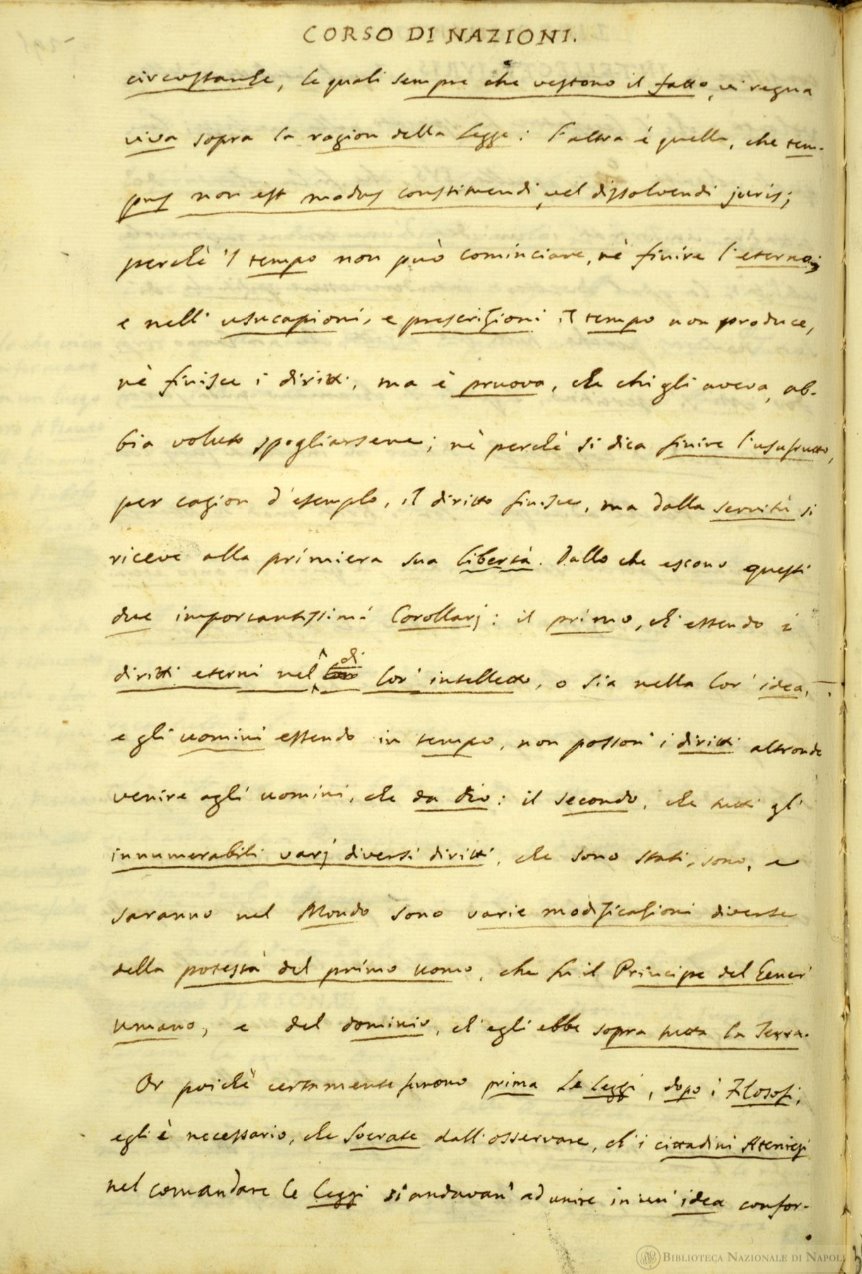 CORSO DI NAZIONI.
circostanze, le quali sempre che vestono il fatto, vi regna
viva sopra la ragion della Legge: l'altra è quella, che tem-
pus non est modus constituendi, vel dissolvendi juris;
perchè 'l tempo non può cominciare, nè finire l'eterno;
e nell' usucapioni, e prescrizioni il tempo non produce,
nè finisce i diritti, ma è pruova, che chi gli aveva, ab-
bia voluto spogliarsene; nè perchè si dica finire l'usufrutto,
per cagion d'esemplo, il diritto finisce, ma dalla servitù si
riceve alla primiera sua libertà. Dallo che escono questi
due importantissimi Corollarj: il primo, ch' essendo i
diritti eterni nel di lor' intelletto, o sia nella lor' idea,
e gli uomini essendo in tempo, non posson' i diritti altronde
venire agli uomini, che da Dio: il secondo, che tutti gl'
innumerabili varj diversi diritti, che sono stati, sono, e
saranno nel Mondo sono varie modificazioni diverse
della potestà del primo uomo, che fu il Principe del Gener'
umano, e del dominio, ch' egli ebbe sopra tutta la Terra.
Or poichè certamente furono prima le Leggi, dopo i Filosofi;
egli è necessario, che Socrate dall'osservare, ch' i cittadini Ateniesi
nel comandare le leggi si andavan' ad unire in un' idea confor-
BIBLIOTECA NAZIONALE DI NAPOLI